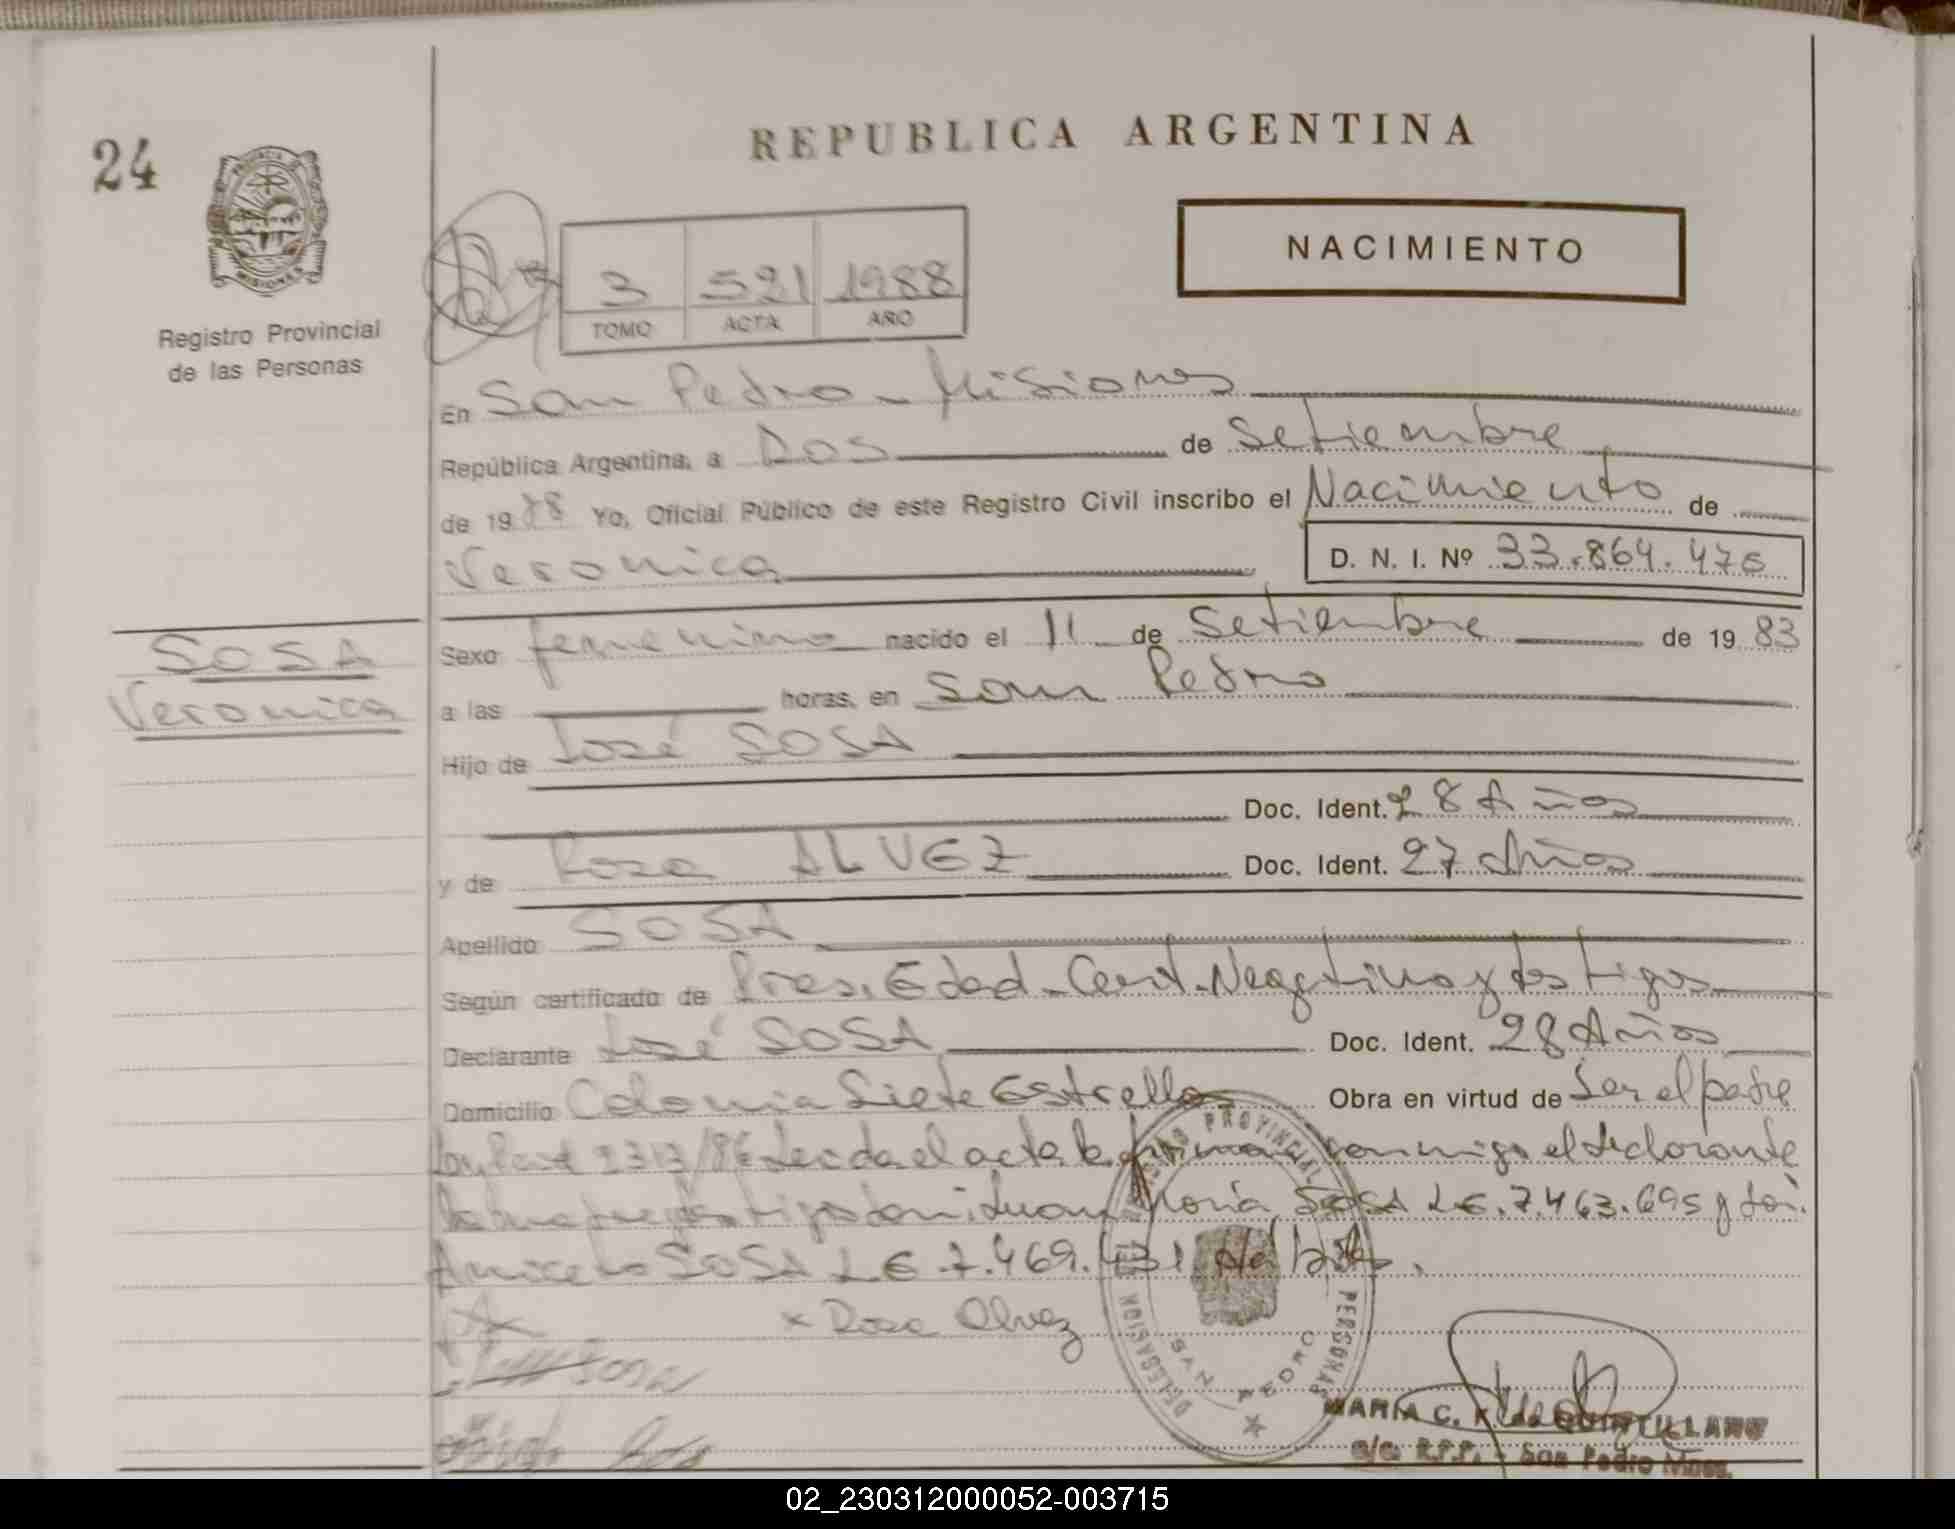 24
PROVINCIA DE
MISIONES
Registro Provincial
de las Personas
REPUBLICA ARGENTINA
NACIMIENTO
3 521 1988
TOMO ACTA AÑO
En San Pedro - Misiones
República Argentina, a Dos de Setiembre
de 1988 Yo, Oficial Público de este Registro Civil inscribo el Nacimiento de
Veronica
D. N. I. Nº 33.864.476
SOSA
Veronica
Sexo femenino nacido el 11 de Setiembre de 1983
a las horas, en San Pedro
Hijo de José SOSA
Doc. Ident. 28 Años
y de Rosa ALVEZ Doc. Ident. 27 Años
Apellido SOSA
Según certificado de Pres. Edad - Cert. Negativo y testigos
Declarante José SOSA Doc. Ident. 28 Años
Domicilio Colonia Siete Estrellas Obra en virtud de Ser el padre
2313/86 Leida el acta la firma conmigo el declarante
la madre y testigos Juan María SOSA L.E. 7.463.695 y
Aniceto SOSA L E 7.469.431
x Rosa Alvez
Sosa
DELEGACION REGISTRO PROVINCIAL DE LAS PERSONAS
SAN PEDRO
MARIA C. K. de QUINTILLANO
a/c. R.P.P. - San Pedro Mnes.
02_230312000052-003715